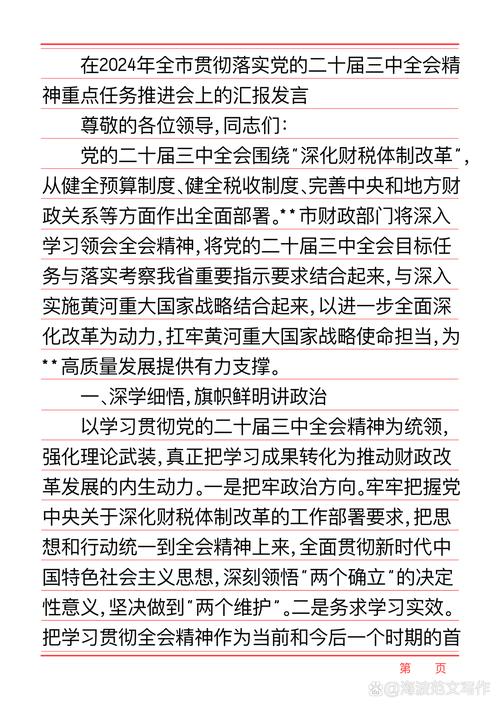 在2024年全市贯彻落实党的二十届三中全会精
神重点任务推进会上的汇报发言
尊敬的各位领导,同志们:
党的二十届三中全会围绕"深化财税体制改革",
从健全预算制度、健全税收制度、完善中央和地方财
政关系等方面作出全面部署。**市财政部门将深入
学习领会全会精神,将党的二十届三中全会目标任
务与落实考察我省重要指示要求结合起来,与深入
实施黄河重大国家战略结合起来,以进一步全面深
化改革为动力,扛牢黄河重大国家战略使命担当,为
**高质量发展提供有力支撑。
一、深学细悟,旗帜鲜明讲政治
以学习贯彻党的二十届三中全会精神为统领,
强化理论武装,真正把学习成果转化为推动财政改
革发展的内生动力。一是把牢政治方向。牢牢把握党
中央关于深化财税体制改革的工作部署要求,把思
想和行动统一到全会精神上来,全面贯彻新时代中
国特色社会主义思想,深刻领悟"两个确立"的决定
性意义,坚决做到"两个维护"。二是务求学习实效。
把学习贯彻全会精神作为当前和今后一个时期的首
第 页
海波范文写作